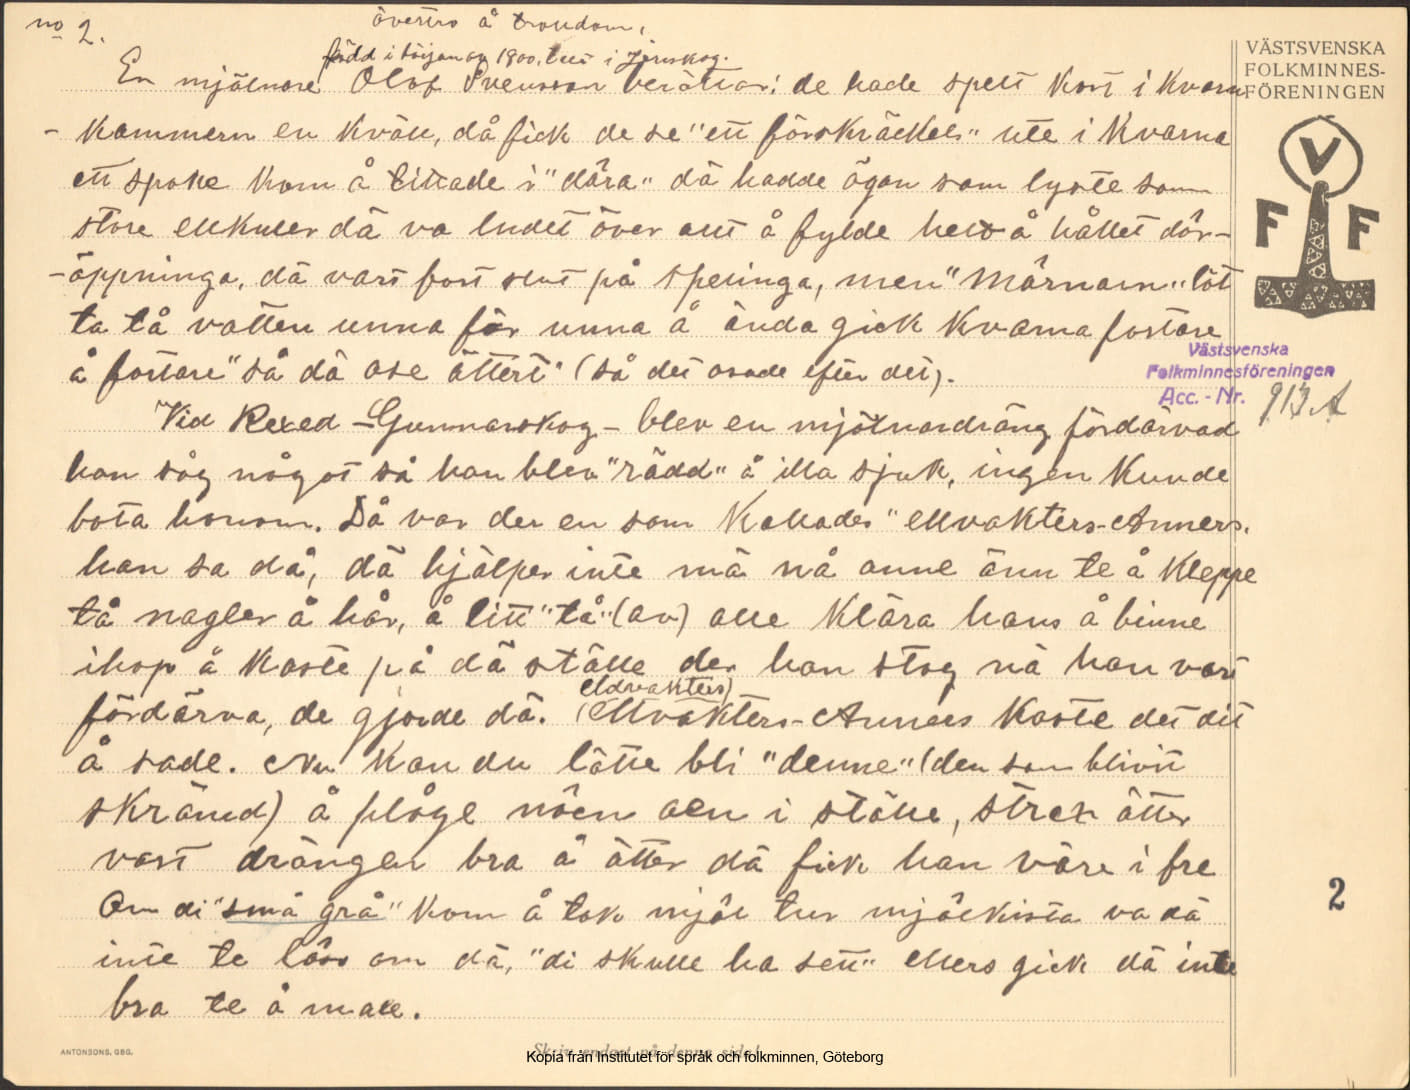 no 2.
övertro å trolldom,
född i början av 1800. talet i Järnskog.
En mjölnare Olof Svensson berättar: de hade spelt kort i kvarn
- kammern en kväll, då fick de se "ett förskräckels" ute i kvarna
ett spoke kom å tittade i "dära" dä hadde ögon som lyste som
store ellkuler dä va ludet över allt å fylde helt å hållet dör-
-öppninga, dä vart fort slut på spelinga, men "Mårnarn" löt
ta tå vatten unna för unna å ända gick kvarna fortare
å fortare "så dä ose ättert" (så det osade efter det).
Vid Rexed - Gunnarskog - blev en mjölnardräng fördärvad
han såg något så han blev "rädd" å illa sjuk, ingen kunde
bota honom. Då var der en som kallades "ellvakters-Anners,
han sa då, dä hjälper inte mä nå anne änn te å kleppe
tå nagler å hår, å litt "tå" (av) alle klära hans å binne
ihop å kaste på dä ställe der han stog nä han vart
fördärva, de gjorde dä. (Eldvakters)
Ellvakters-Anners kaste det dit
å sade. Nu kan du lätte bli "denne" (den som blivit
skrämd) å plåge nöen aen i ställe, strex ätter
vart drängen bra å ätter dä fick han väre i fre
Om di "små grå" kom å tok mjöl tur mjölkista va dä
inte te låss om dä, "di skulle ha sett" ellers gick dä inte
bra te å male.
VÄSTSVENSKA
FOLKMINNES-
FÖRENINGEN
V
F F
Västsvenska
Folkminnesföreningen
Acc. - Nr. 913 A
2
ANTONSONS, GBG.
Skriv endast på denna sida!
Kopia från Institutet för språk och folkminnen, Göteborg